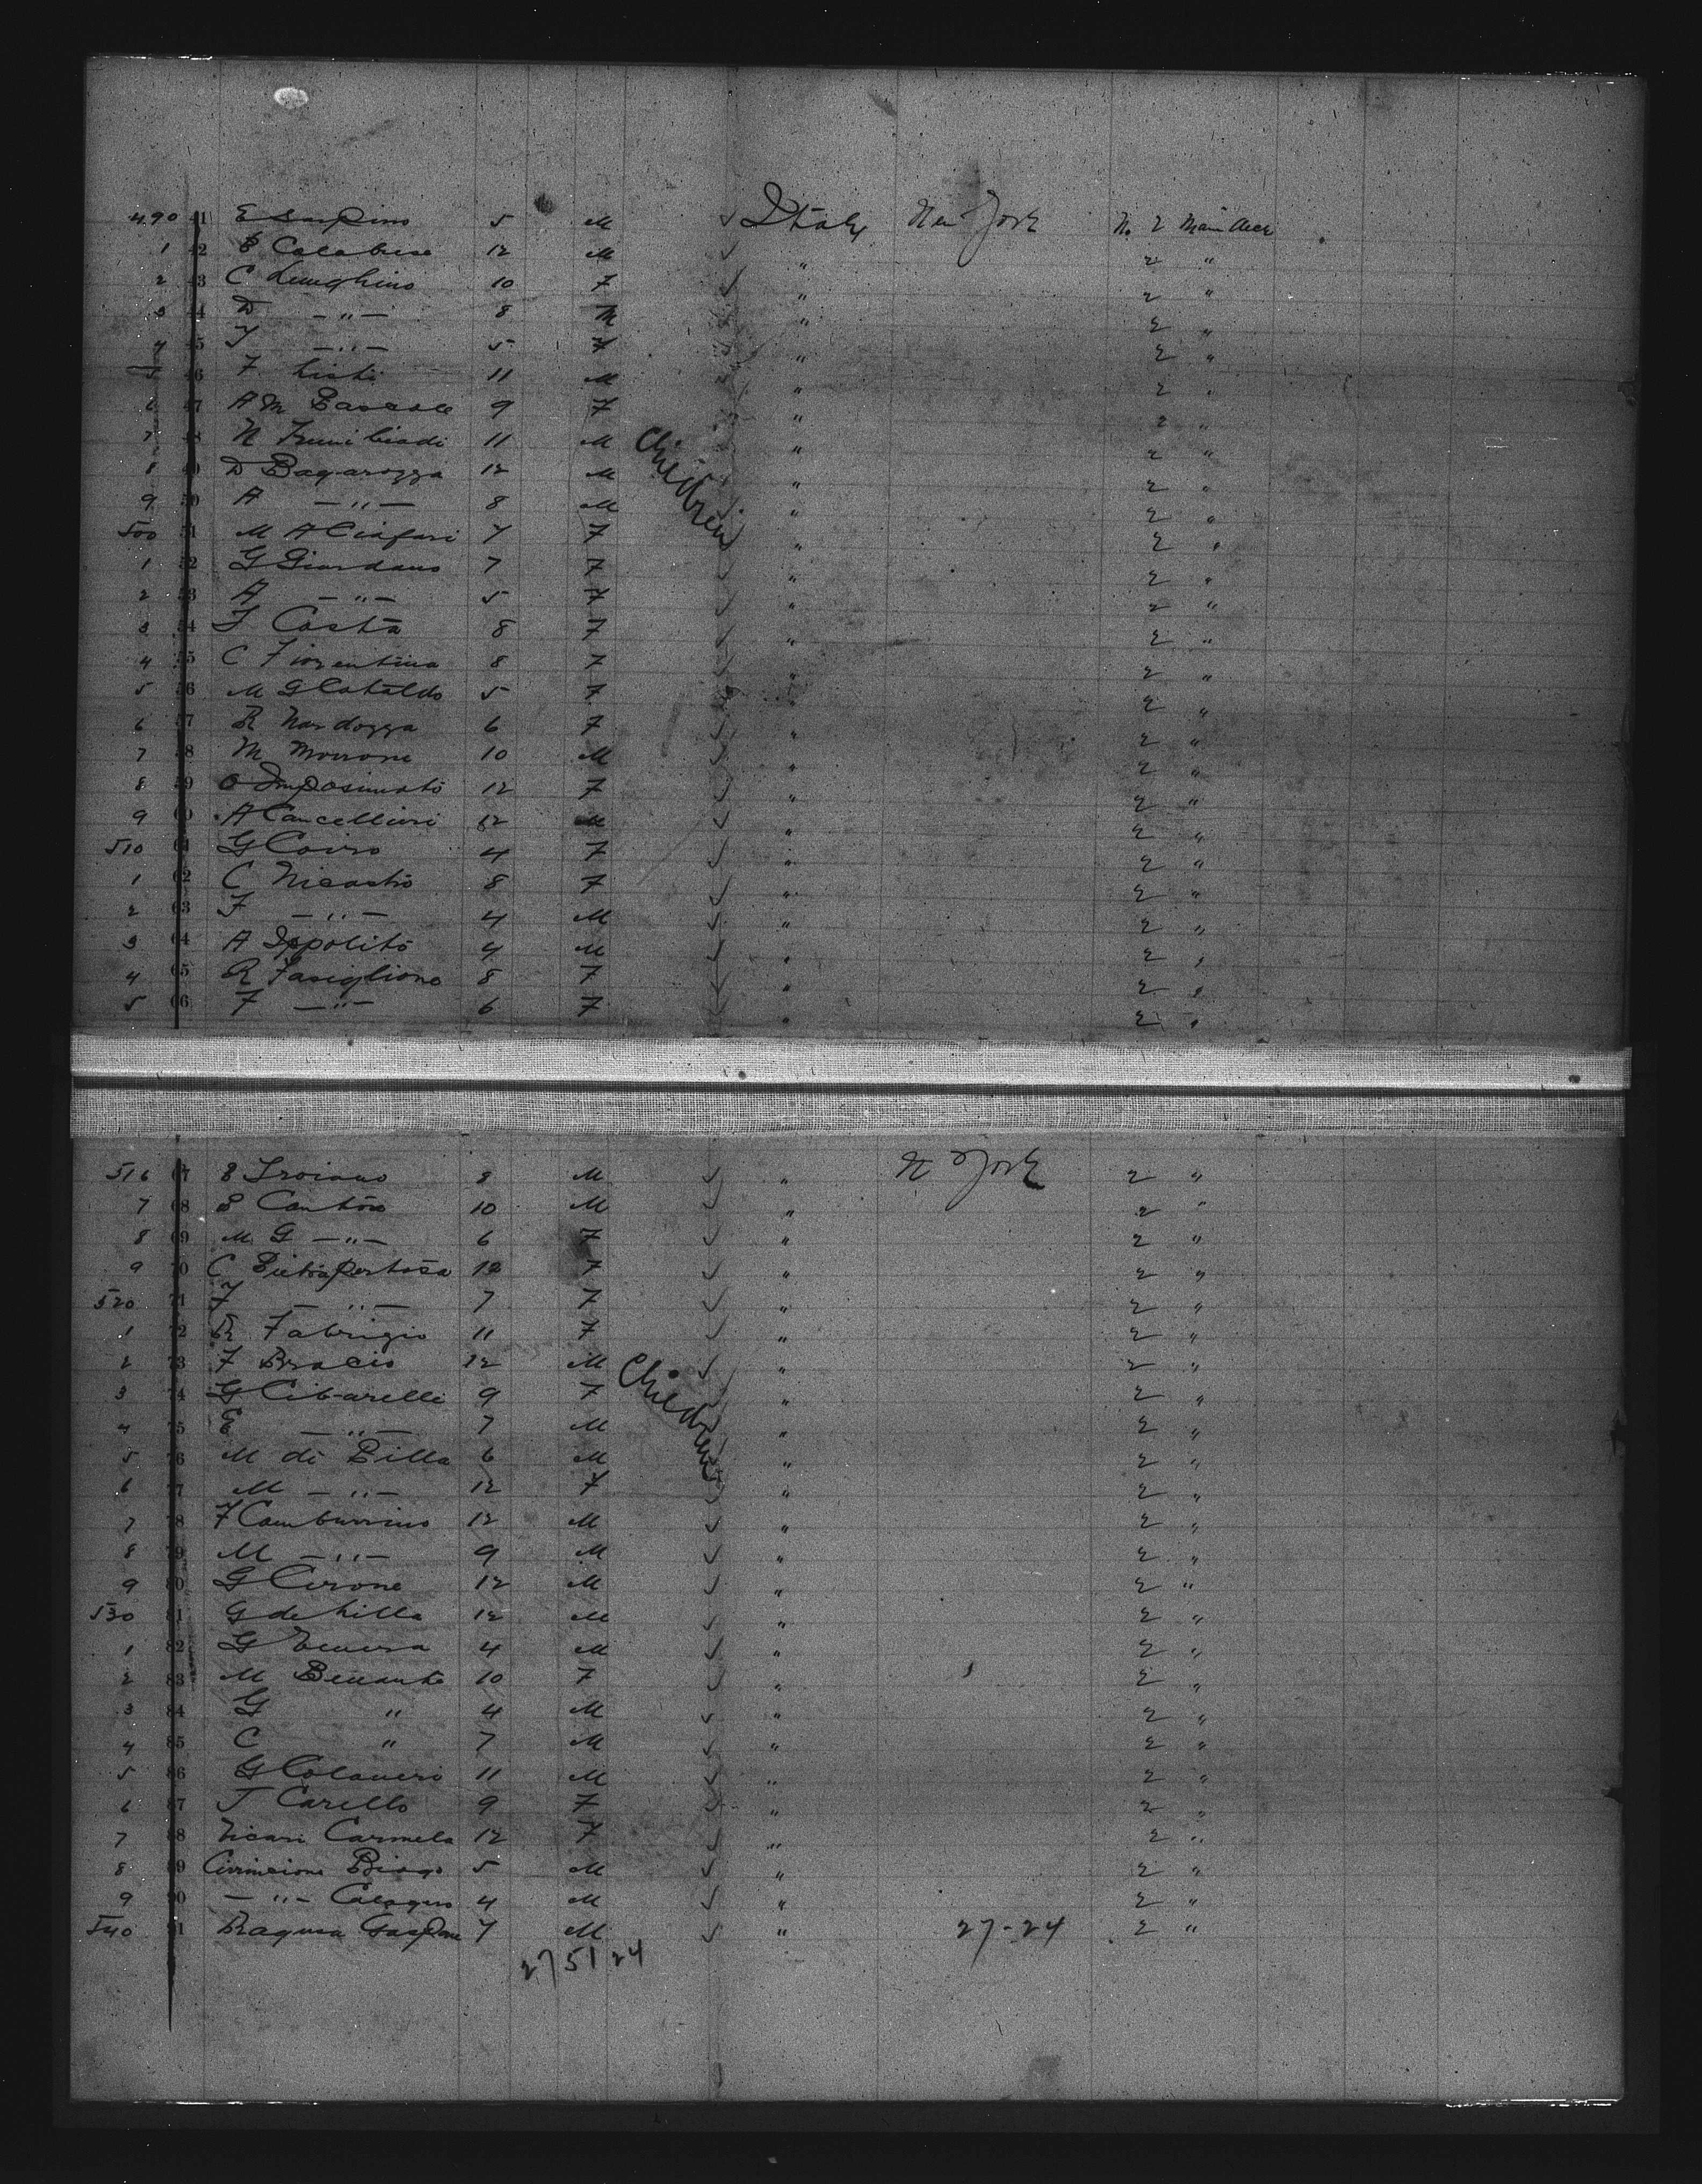 490 41 E 5 M ✓ Italy New York No 2 Main deck
1 42 Calabrese 12 M ✓ " 2 "
2 43 C 10 F ✓ " 2 "
3 44 D — " — 8 M " 2 "
4 45 — " — 5 F " 2 "
5 46 F 11 M " 2 "
6 47 A M 9 F " 2 "
7 48 N 11 M Children " 2 "
8 49 D Bagarozza 12 M " 2 "
9 50 A — " — 8 M " 2 "
500 51 M A Ciafari 7 F " 2 "
1 52 G Giordano 7 F ✓ " 2 "
2 53 A — " — 5 F ✓ " 2 "
3 54 F Costa 8 F ✓ " 2 "
4 55 C Fiorentino 8 F ✓ " 2 "
5 56 M G Cataldo 5 F " 2 "
6 57 R Nardozza 6 F ✓ " 2 "
7 58 M Morrone 10 M ✓ " 2 "
8 59 O Imposimato 12 F ✓ " 2 "
9 60 A Cancellieri 12 M ✓ " 2 "
510 61 G Coiro 4 F ✓ " 2 "
1 62 C Nicastro 8 F ✓ " 2 "
2 63 F — " — 4 M ✓ " 2 "
3 64 A Ippolito 4 M ✓ " 2 "
4 65 R Fasiglione 8 F ✓ " 2 "
5 66 F — " — 6 F ✓ " 2 "
516 67 Troiano 8 M ✓ " N York 2 "
7 68 Cantore 10 M ✓ " 2 "
8 69 M G — " — 6 F ✓ " 2 "
9 70 C Pietrapertosa 12 F ✓ " 2 "
520 71 F — " — 7 F ✓ " 2 "
1 72 R Fabrizio 11 F ✓ " 2 "
2 73 F Bracio 12 M ✓ " 2 "
3 74 G Cibarelli 9 F Children ✓ " 2 "
4 75 E — " — 7 M " 2 "
5 76 M di Pilla 6 M " 2 "
6 77 M — " — 12 F ✓ " 2 "
7 78 F Camburrino 12 M ✓ " 2 "
8 79 M — " — 9 M ✓ " 2 "
9 80 G Cirone 12 M ✓ " 2 "
530 81 G de Lilla 12 M ✓ " 2 "
1 82 G 4 M ✓ " 2 "
2 83 M Benante 10 F ✓ " 2 "
3 84 G " 4 M ✓ " 2 "
4 85 C " 7 M ✓ " 2 "
5 86 G Colaneri 11 M ✓ " 2 "
6 87 T Carello 9 F ✓ " 2 "
7 88 Carmela 12 F ✓ " 2 "
8 89 Biago 5 M ✓ " 2 "
9 90 — " — Calogero 4 M ✓ " 2 "
540 91 Ragusa Gaspare 7 M ✓ " 27-24 2 "
27 51 24